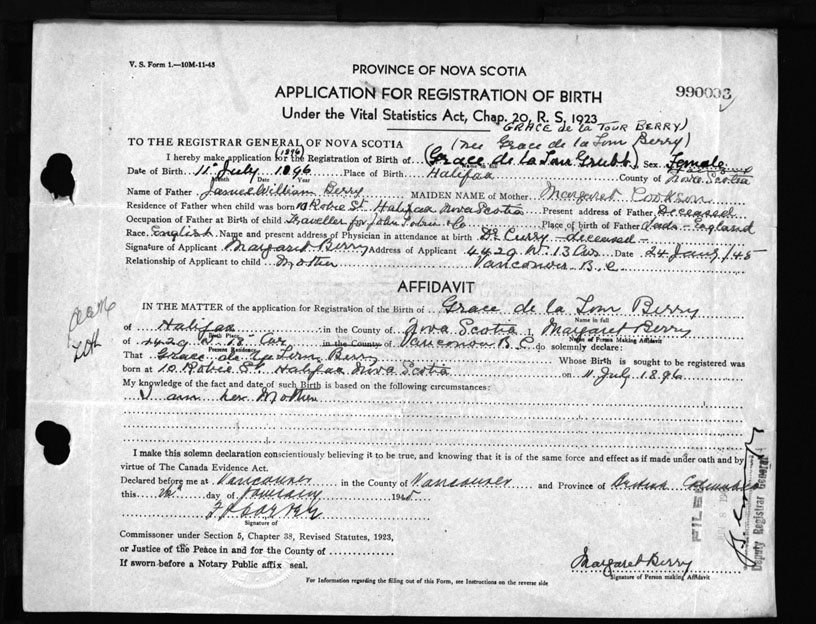 V. S. Form 1.—10M-11-43
PROVINCE OF NOVA SCOTIA
APPLICATION FOR REGISTRATION OF BIRTH 990003
Under the Vital Statistics Act, Chap. 20, R. S. 1923
GRACE de la TOUR BERRY)
TO THE REGISTRAR GENERAL OF NOVA SCOTIA (nee Grace de la Tour Berry)
(1896)
I hereby make application for the Registration of Birth of (Grace de la Tour Grubb) Sex Female
Date of Birth 11 July 1896 Place of Birth Halifax County of Nova Scotia
Month Date Year
Name of Father James William Berry MAIDEN NAME of Mother Margaret Cookson
Residence of Father when child was born 10 Robie St Halifax Nova Scotia Present address of Father Deceased
Occupation of Father at Birth of child Traveller for John Tobin & Co Place of birth of Father Leeds England
Race English Name and present address of Physician in attendance at birth Dr Curry - deceased -
Signature of Applicant Margaret Berry Address of Applicant 4429 W. 13 Ave Date 24 Jany /45
Relationship of Applicant to child Mother Vancouver B. C.
AFFIDAVIT
IN THE MATTER of the application for Registration of the Birth of Grace de la Tour Berry
Name in full
of Halifax in the County of Nova Scotia I, Margaret Berry
Birth Place Name of Person Making Affidavit
of 4429 W. 13 Ave in the County of Vancouver B C do solemnly declare:
Present Residence
That Grace de la Tour Berry Whose Birth is sought to be registered was
born at 10 Robie St Halifax Nova Scotia on 11 July 1896
My knowledge of the fact and date of such Birth is based on the following circumstances:
I am her Mother
I make this solemn declaration conscientiously believing it to be true, and knowing that it is of the same force and effect as if made under oath and by
virtue of The Canada Evidence Act.
Declared before me at Vancouver in the County of Vancouver and Province of British Columbia
this day of January 1945
Signature of
Commissioner under Section 5, Chapter 38, Revised Statutes, 1923,
or Justice of the Peace in and for the County of
If sworn before a Notary Public affix seal.
Margaret Berry
Signature of Person making Affidavit
For Information regarding the filling out of this Form, see Instructions on the reverse side
FILED
Deputy Registrar General